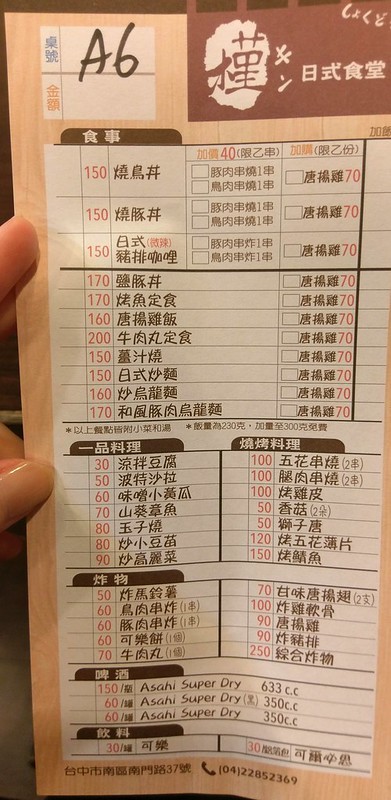 しょくど
桌號
金額
A6
槿
キン
日式食堂
食事
加價40(限乙串)
加購(限乙份)
加飯
150 燒鳥丼 豚肉串燒1串 鳥肉串燒1串 唐揚雞70
150 燒豚丼 豚肉串燒1串 鳥肉串燒1串 唐揚雞70
150 日式(微辣)豬排咖哩 豚肉串炸1串 鳥肉串炸1串 唐揚雞70
170 鹽豚丼 唐揚雞70
170 烤魚定食 唐揚雞70
160 唐揚雞飯 唐揚雞70
200 牛肉丸定食 唐揚雞70
150 薑汁燒 唐揚雞70
150 日式炒麵 唐揚雞70
160 炒烏龍麵 唐揚雞70
170 和風豚肉烏龍麵 唐揚雞70
*以上餐點皆附小菜和湯 *飯量為230克，加量至300克免費
一品料理
30 涼拌豆腐
50 波特沙拉
60 味噌小黃瓜
70 山葵章魚
80 玉子燒
80 炒小豆苗
90 炒高麗菜
燒烤料理
100 五花串燒(2串)
100 腿肉串燒(2串)
100 烤雞皮
50 香菇(2朵)
50 獅子唐
120 烤五花薄片
150 烤鯖魚
炸物
50 炸馬鈴薯
60 鳥肉串炸(1串)
60 豚肉串炸(1串)
60 可樂餅(1個)
70 牛肉丸(1個)
70 甘味唐揚翅(2支)
100 炸雞軟骨
90 唐揚雞
90 炸豬排
250 綜合炸物
啤酒
150/瓶 Asahi Super Dry 633c.c
60/罐 Asahi Super Dry(黑) 350c.c
60/罐 Asahi Super Dry 350c.c
飲料
30/罐 可樂
30/鋁箔包 可爾必思
台中市南區南門路37號 (04)22852369